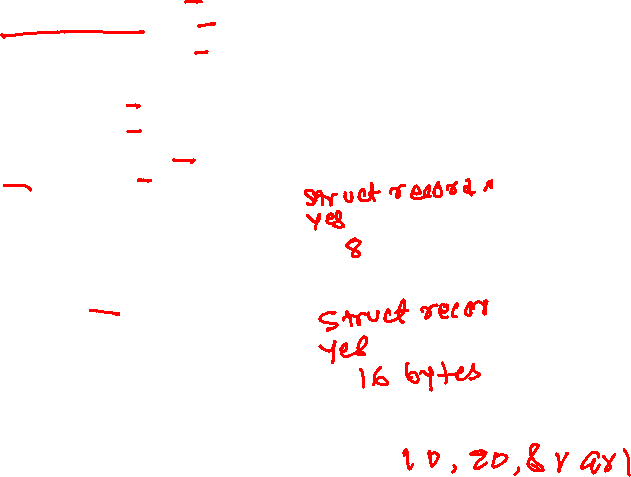 struct record *
yes
8
struct recor
yes
16 bytes
10, 20, &var1